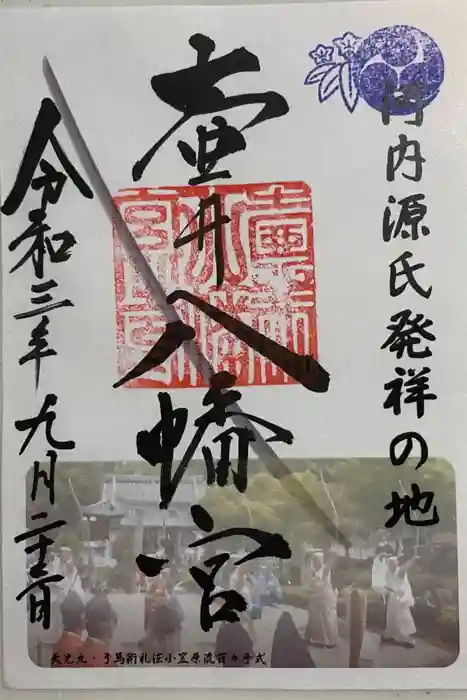 河内源氏発祥の地
壺井八幡宮
令和三年九月二十三日
天光丸・弓馬術礼法小笠原流百々手式